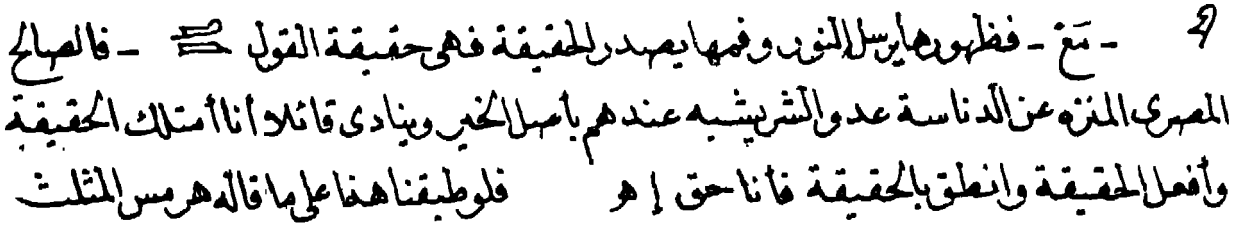 - مَعْ - فظهورها يرسل النور وفمها يصدر الحقيقة فهى حقيقة القول - فالصالح
المصرى المنزه عن الدناسة عدو الشر يشبه عندهم بأصل الخير وينادى قائلا أنا أمتلك الحقيقة
وأفعل الحقيقة وانطق بالحقيقة فأنا حق إ هـ فلو طبقنا هذا على ما قاله هرمس المثلث